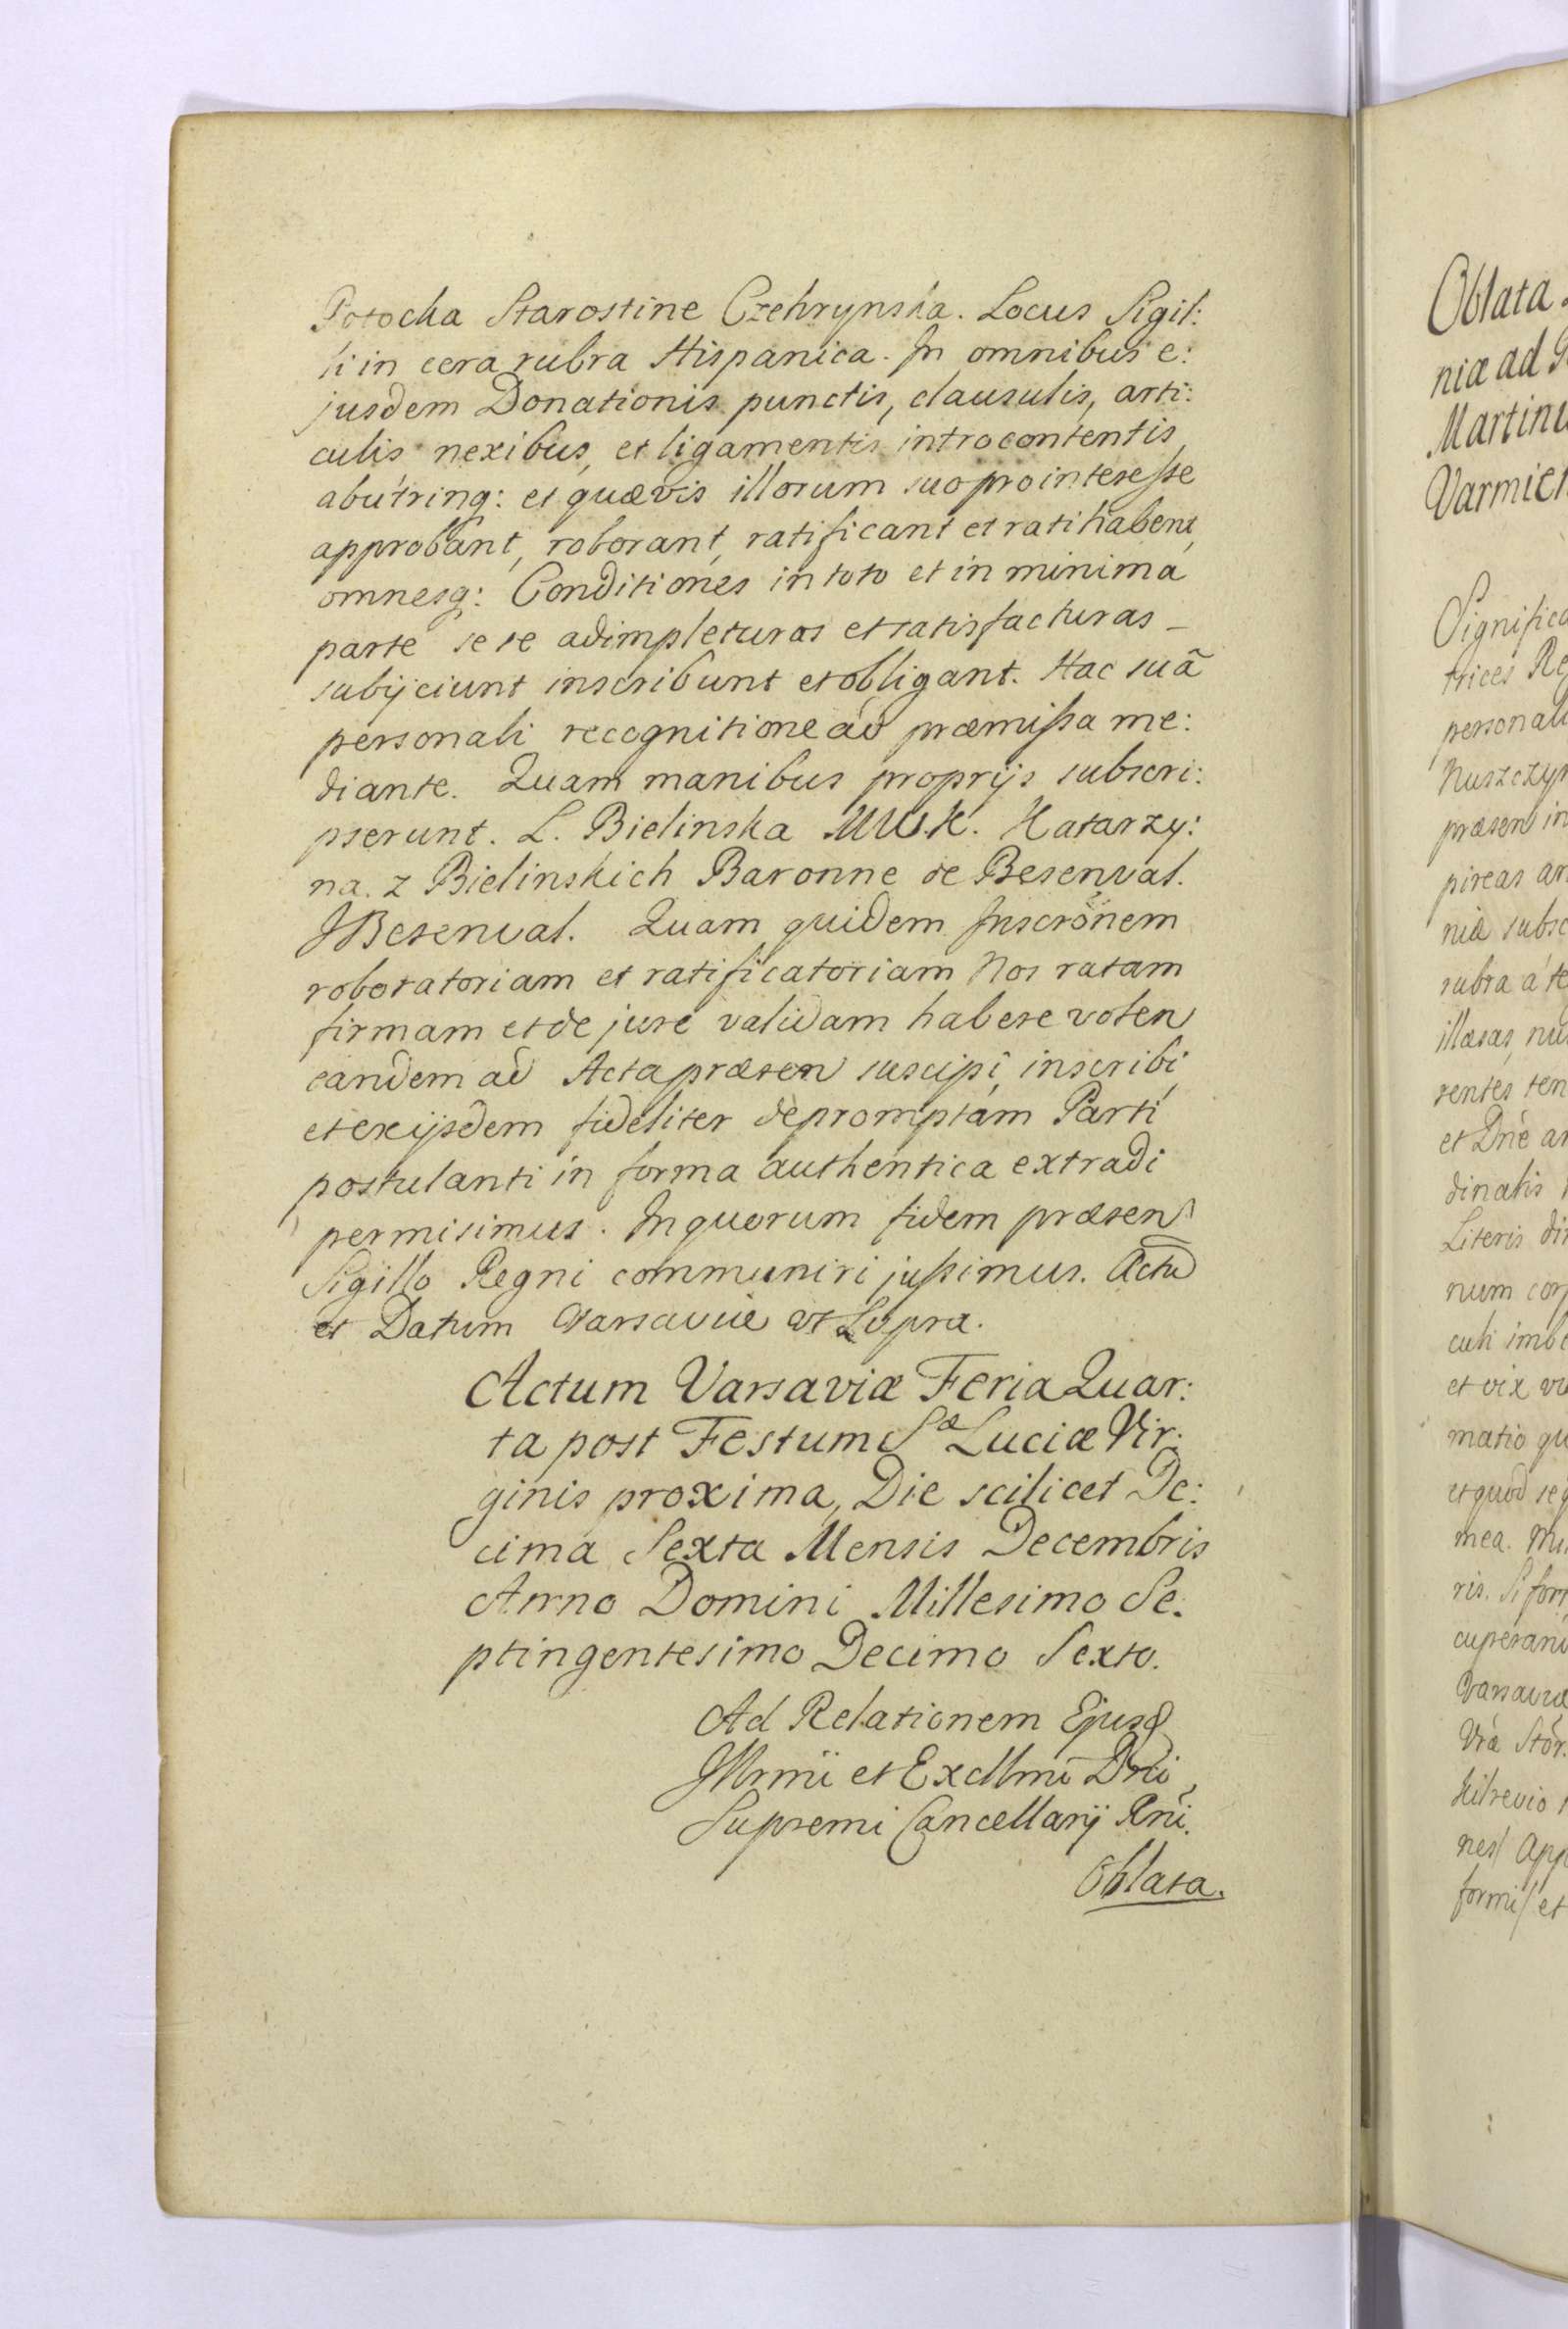 Potocka Starostine Czehrynska. Locus Sigil:
li in cera rubra Hispanica. In omnibus e:
jusdem Donationis punctis, clausulis, arti:
culis nexibus, et ligamentis introcontentis
abutrinq: et quævis illorum suo pro interesse
approbant, roborant, ratificant et ratihabent,
omnesq: Conditiones in toto et in minima
parte se se adimpleturas et satisfacturas _
subijciunt inscribunt et obligant. Hac suã
personali recognitione ad præmissa me:
diante. Quam manibus proprijs subscri:
pserunt. L. Bielinska MWK. Katarzy:
na z Bielinskich Baronne de Besenval.
JBesenval. Quam quidem Inscrõnem
roboratoriam et ratificatoriam Nos ratam
firmam et de jure validam habere volen
eandem ad Acta præsen suscipi, inscribi
et ex ijsdem fideliter depromptam Parti
postulanti in forma authentica extradi
permisimus. In quorum fidem præsen
Sigillo Regni communiri jussimus. Actũ
et Datum Varsaviæ vt Supra.
Actum Varsaviæ Feria Quar:
ta post Festum Sæ Luciæ Vir:
ginis proxima, Die scilicet De:
cima Sexta Mensis Decembris
Anno Domini Millesimo Se:
ptingentesimo Decimo Sexto.
Ad Relationem Ejusd
Illrmi et Excllmi Dni
Supremi Cancellarij Rni.
Oblata.
Oblata
niæ ad
Martinu
Varmien
Significa
trices Re
personali
Kuszczyn
præsen in
pireas ar
niæ subsc
rubra á te
illæsas, nu
rentes ten
et Dnẽ
dinalis
Literis di
num cor
culi imbe
et vix
matio qu
et quod seq
mea.
ris. Si for
cuperan
Varsaviæ
Vræ Stor.
nes App
formi et